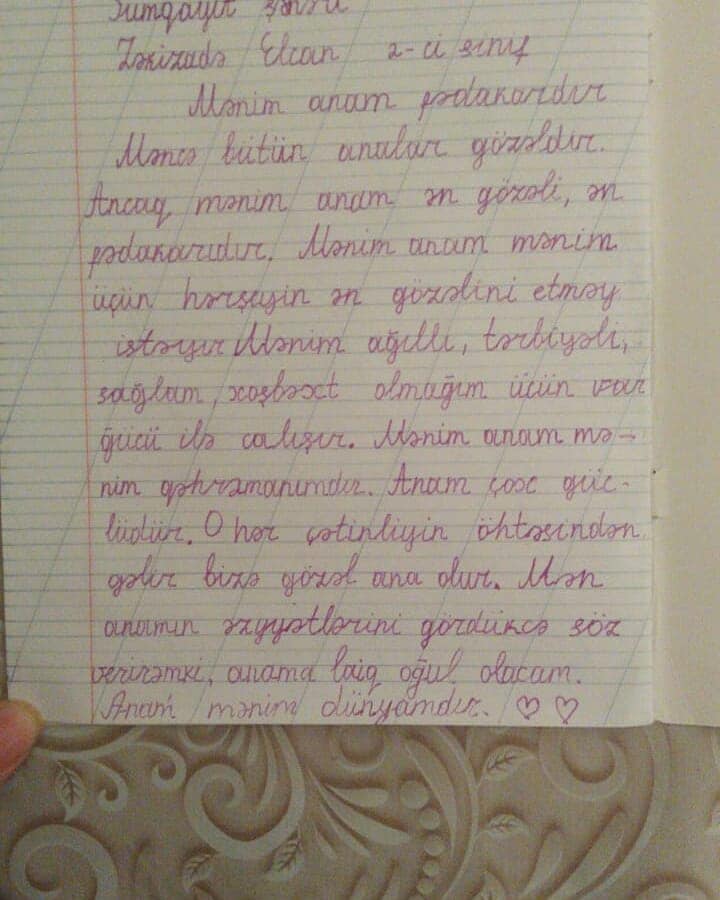 Sumqayıt şəhəri
Zəkizadə Elcan 2-ci sinif
Mənim anam fədakardır
Məncə bütün analar gözəldir.
Ancaq mənim anam ən gözəli, ən
fədakarıdır. Mənim anam mənim
üçün hərşeyin ən gözəlini etməy
istəyir Mənim ağıllı, tərbiyəli,
sağlam, xoşbəxt olmağım üçün var
gücü ilə calışır. Mənim anam mə-
nim qəhrəmanımdır. Anam çox güc-
lüdür. O hər çətinliyin öhtəsindən
gəlir bizə gözəl ana olur. Mən
anamın əzyyətlərini gördükcə söz
verirəmki, anama laiq oğul olacam.
Anam mənim dünyamdır. ♡ ♡